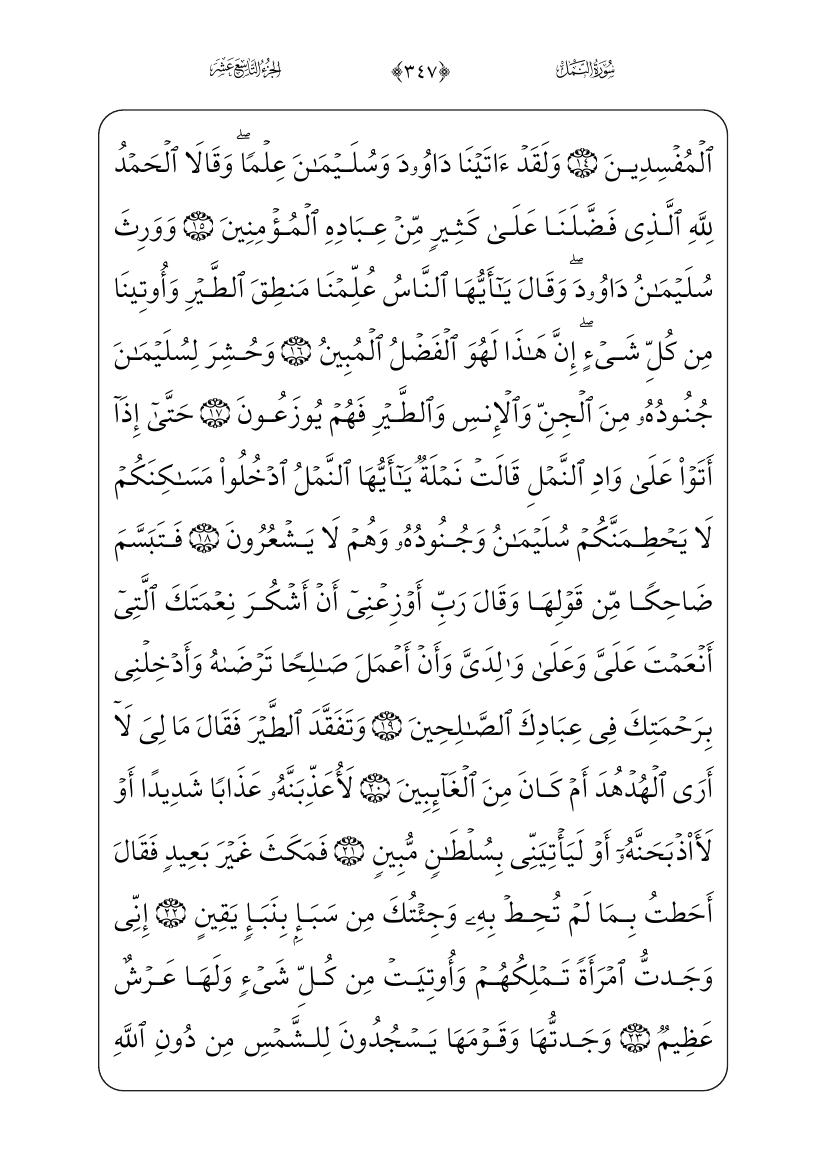 سُورَةُ النَّمْلِ ﴿٣٤٧﴾ الجُزْءُ التَّاسِعَ عَشَرَ
ٱلْمُفْسِدِينَ ١٤ وَلَقَدْ ءَاتَيْنَا دَاوُۥدَ وَسُلَيْمَٰنَ عِلْمًاۖ وَقَالَا ٱلْحَمْدُ
لِلَّهِ ٱلَّذِى فَضَّلَنَا عَلَىٰ كَثِيرٍ مِّنْ عِبَادِهِ ٱلْمُؤْمِنِينَ ١٥ وَوَرِثَ
سُلَيْمَٰنُ دَاوُۥدَۖ وَقَالَ يَٰٓأَيُّهَا ٱلنَّاسُ عُلِّمْنَا مَنطِقَ ٱلطَّيْرِ وَأُوتِينَا
مِن كُلِّ شَىْءٍۖ إِنَّ هَٰذَا لَهُوَ ٱلْفَضْلُ ٱلْمُبِينُ ١٦ وَحُشِرَ لِسُلَيْمَٰنَ
جُنُودُهُۥ مِنَ ٱلْجِنِّ وَٱلْإِنسِ وَٱلطَّيْرِ فَهُمْ يُوزَعُونَ ١٧ حَتَّىٰٓ إِذَآ
أَتَوْا۟ عَلَىٰ وَادِ ٱلنَّمْلِ قَالَتْ نَمْلَةٌ يَٰٓأَيُّهَا ٱلنَّمْلُ ٱدْخُلُوا۟ مَسَٰكِنَكُمْ
لَا يَحْطِمَنَّكُمْ سُلَيْمَٰنُ وَجُنُودُهُۥ وَهُمْ لَا يَشْعُرُونَ ١٨ فَتَبَسَّمَ
ضَاحِكًا مِّن قَوْلِهَا وَقَالَ رَبِّ أَوْزِعْنِىٓ أَنْ أَشْكُرَ نِعْمَتَكَ ٱلَّتِىٓ
أَنْعَمْتَ عَلَىَّ وَعَلَىٰ وَٰلِدَىَّ وَأَنْ أَعْمَلَ صَٰلِحًا تَرْضَىٰهُ وَأَدْخِلْنِى
بِرَحْمَتِكَ فِى عِبَادِكَ ٱلصَّٰلِحِينَ ١٩ وَتَفَقَّدَ ٱلطَّيْرَ فَقَالَ مَا لِىَ لَآ
أَرَى ٱلْهُدْهُدَ أَمْ كَانَ مِنَ ٱلْغَآئِبِينَ ٢٠ لَأُعَذِّبَنَّهُۥ عَذَابًا شَدِيدًا أَوْ
لَأَا۟ذْبَحَنَّهُۥٓ أَوْ لَيَأْتِيَنِّى بِسُلْطَٰنٍ مُّبِينٍ ٢١ فَمَكَثَ غَيْرَ بَعِيدٍ فَقَالَ
أَحَطتُ بِمَا لَمْ تُحِطْ بِهِۦ وَجِئْتُكَ مِن سَبَإٍۭ بِنَبَإٍ يَقِينٍ ٢٢ إِنِّى
وَجَدتُّ ٱمْرَأَةً تَمْلِكُهُمْ وَأُوتِيَتْ مِن كُلِّ شَىْءٍ وَلَهَا عَرْشٌ
عَظِيمٌ ٢٣ وَجَدتُّهَا وَقَوْمَهَا يَسْجُدُونَ لِلشَّمْسِ مِن دُونِ ٱللَّهِ